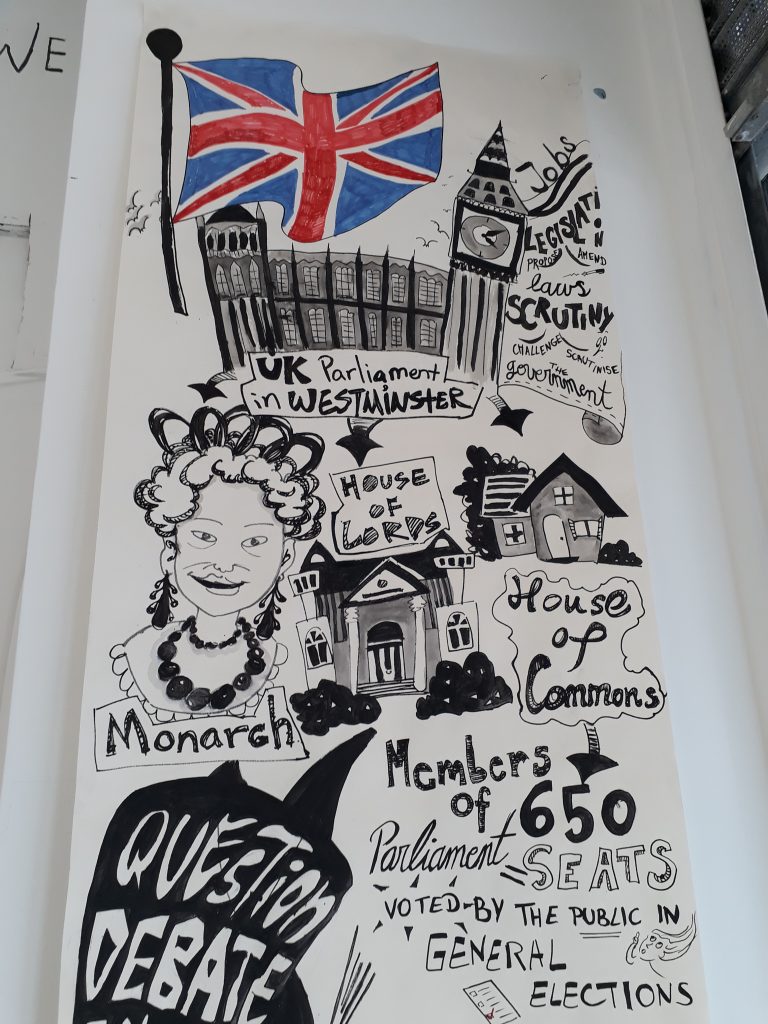 WE
Jobs
LEGISLATI
N
PROPOSE AMEND
laws
SCRUTINY
CHALLENGE go
SCRUTINISE
THE
government
UK Parliament
in WESTMINSTER
HOUSE
OF
LORDS
House
of
Commons
Monarch
Members
of 650
Parliament SEATS
VOTED-BY THE PUBLIC IN
GENERAL
ELECTIONS
QUESTION
DEBATE